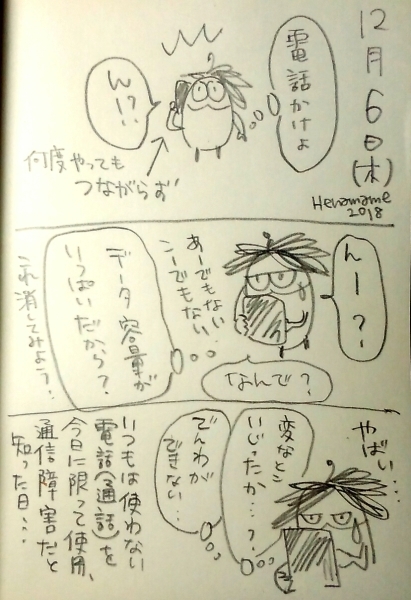 12月6日(木)
Henamame
2018
電話かけよ
ん!?
何度やっても
つながらず
んー?
なんで?
あーでもない…
こーでもない
データ容量が
いっぱいだから?
これ消してみよう?
やばい…
変なとこ
いじったか…?
でんわが
できない…
いつもは使わない
電話(通話)を
今日に限って使用、
通信障害だと
知った日…